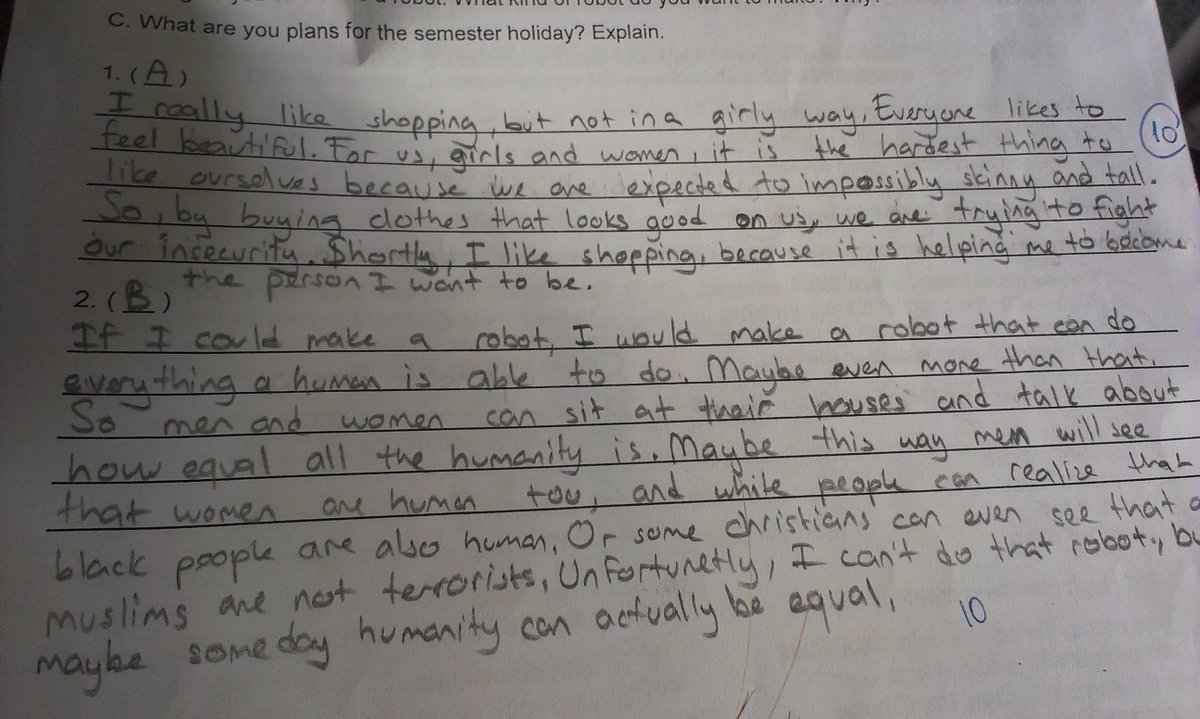 robot. What kind of robot do you want to make? Why?
C. What are you plans for the semester holiday? Explain.
1. (A)
I really like shopping, but not in a girly way. Everyone likes to
feel beautiful. For us, girls and women, it is the hardest thing to
10
like ourselves because we are expected to impossibly skinny and tall.
So, by buying clothes that looks good on us, we are trying to fight
our insecurity. Shortly, I like shopping, because it is helping me to become
the person I want to be.
2. (B)
If I could make a robot, I would make a robot that can do
everything a human is able to do. Maybe even more than that.
So men and women can sit at their houses and talk about
how equal all the humanity is. Maybe this way men will see
that women are human too, and white people can realize that
black people are also human. Or some christians can even see that
muslims are not terrorists. Unfortunetly, I can't do that robot,
maybe some day humanity can actually be equal.
10